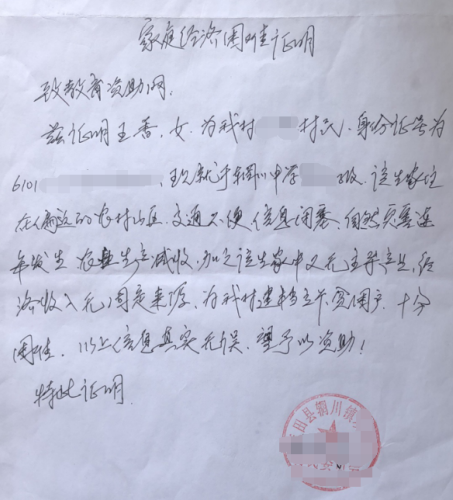 家庭经济困难证明
致教育资助网:
兹证明王香,女,为我村 村民,身份证号为
6101 ,现就于辋川中学 级,该生家住
在偏远的农村山区,交通不便,信息闭塞,自然灾害连
年发生,农业生产减收,加之该生家中又无主导产业,经
济收入无固定来源,为我村建档立卡贫困户,十分
困难,以上信息真实无误,望予以资助!
特此证明
田县辋川镇